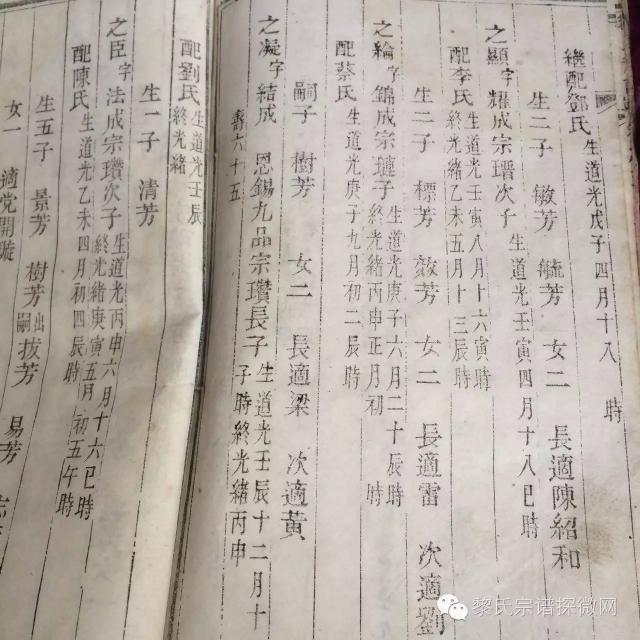 繼配鄧氏 生道光戊子四月十八 時
生二子 敏芳 毓芳 女二 長適陳紹和
之顯字耀成宗瑨次子 生道光壬寅四月十八巳時
配李氏 生道光壬寅八月十六寅時
終光緒乙未五月十三辰時
生二子 標芳 效芳 女二 長適雷 次適劉
之綸字錦成宗璉子 生道光庚子六月二十辰時
終光緒丙申正月初 時
配蔡氏 生道光庚子九月初二辰時
嗣子 樹芳 女二 長適梁 次適黃
之凝字結成 恩錫九品宗瓚長子 生道光壬辰十二月十
子時終光緒丙申
壽六十五
配劉氏 生道光壬辰
終光緒
生一子 清芳
之臣字法成宗瓚次子 生道光丙申六月十六巳時
終光緒庚寅五月初五午時
配陳氏 生道光乙未四月初四辰時
生五子 景芳 樹芳出嗣 拔芳 易芳
女一 適党開璇
黎氏宗谱探微网